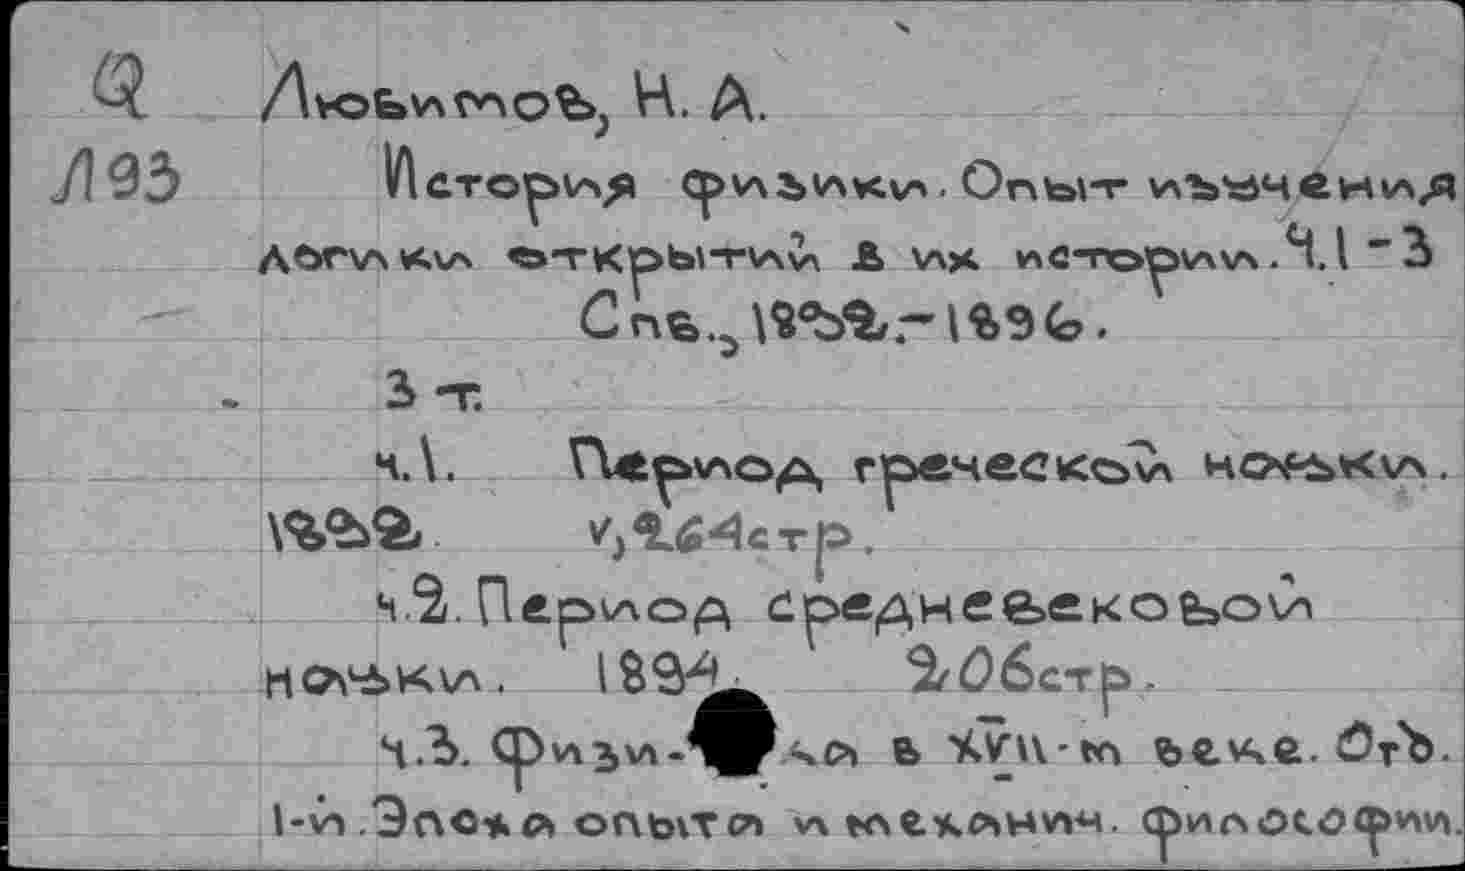 Q Любимов, Н. А.
Л93 История физики. Опыт изучения
логики открытий в их истории. Ч.1-3
Спб., 1892.-1896.
3 т.
ч.1. Период греческой науки.
1892 V, 264 стр.
ч.2. Период средневековой
науки. 1894. 206 стр.
Ч.3. Физи- ка в XVII-м веке. Отъ.
1-й. Эпоха опыта и механич. философии.